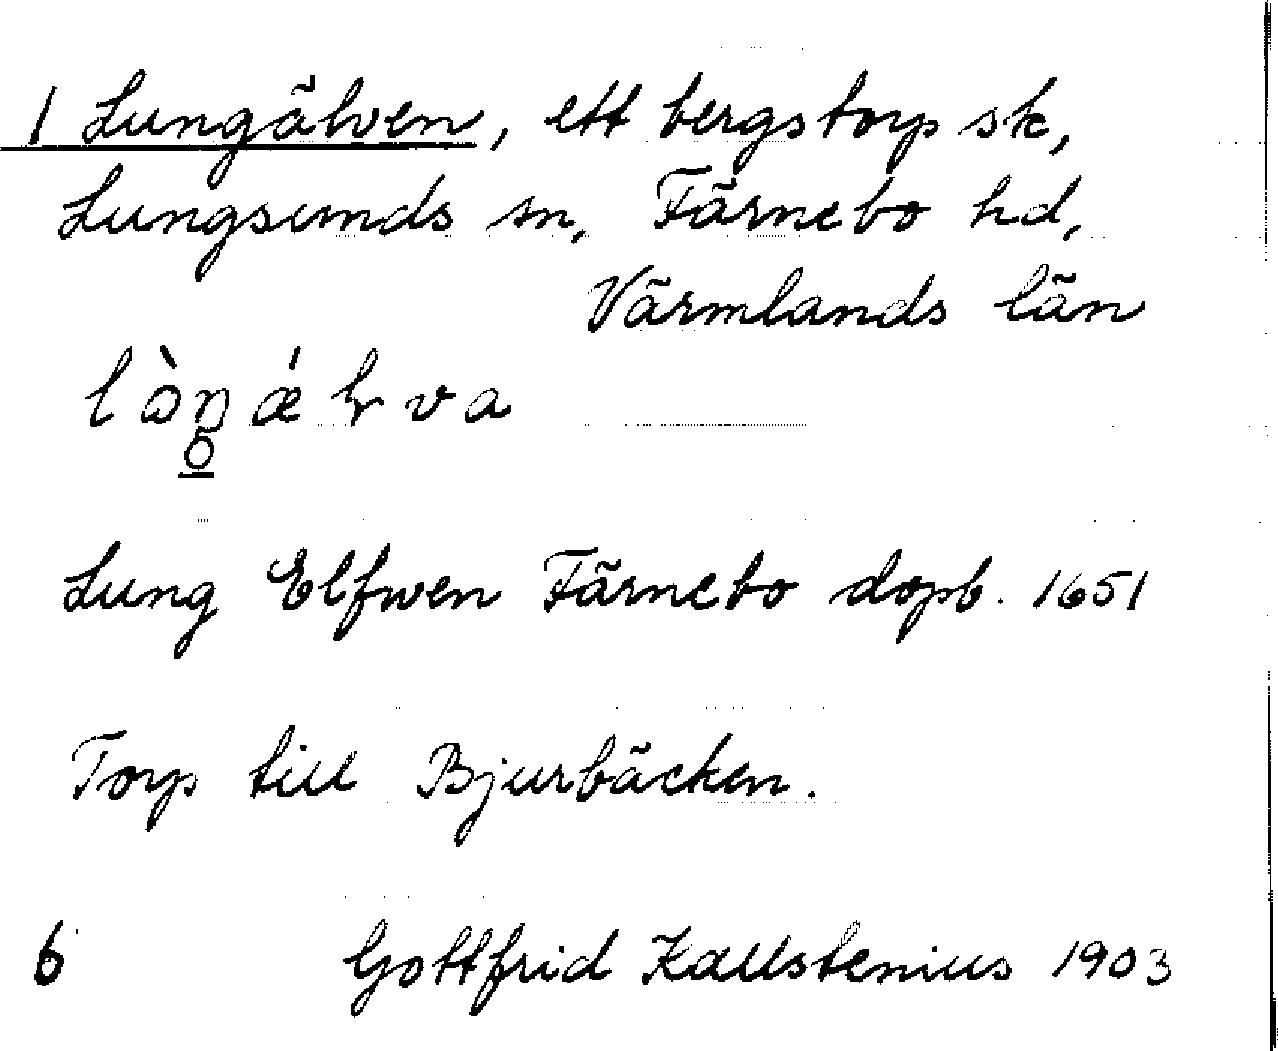 1 Lungälven, ett bergstorp sk,
Lungsunds sn, Färnebo hd,
Värmlands län
Lung Elfwen Färnebo dopb. 1651
Torp till Bjurbäcken.
6 Gottfrid Kallstenius 1903